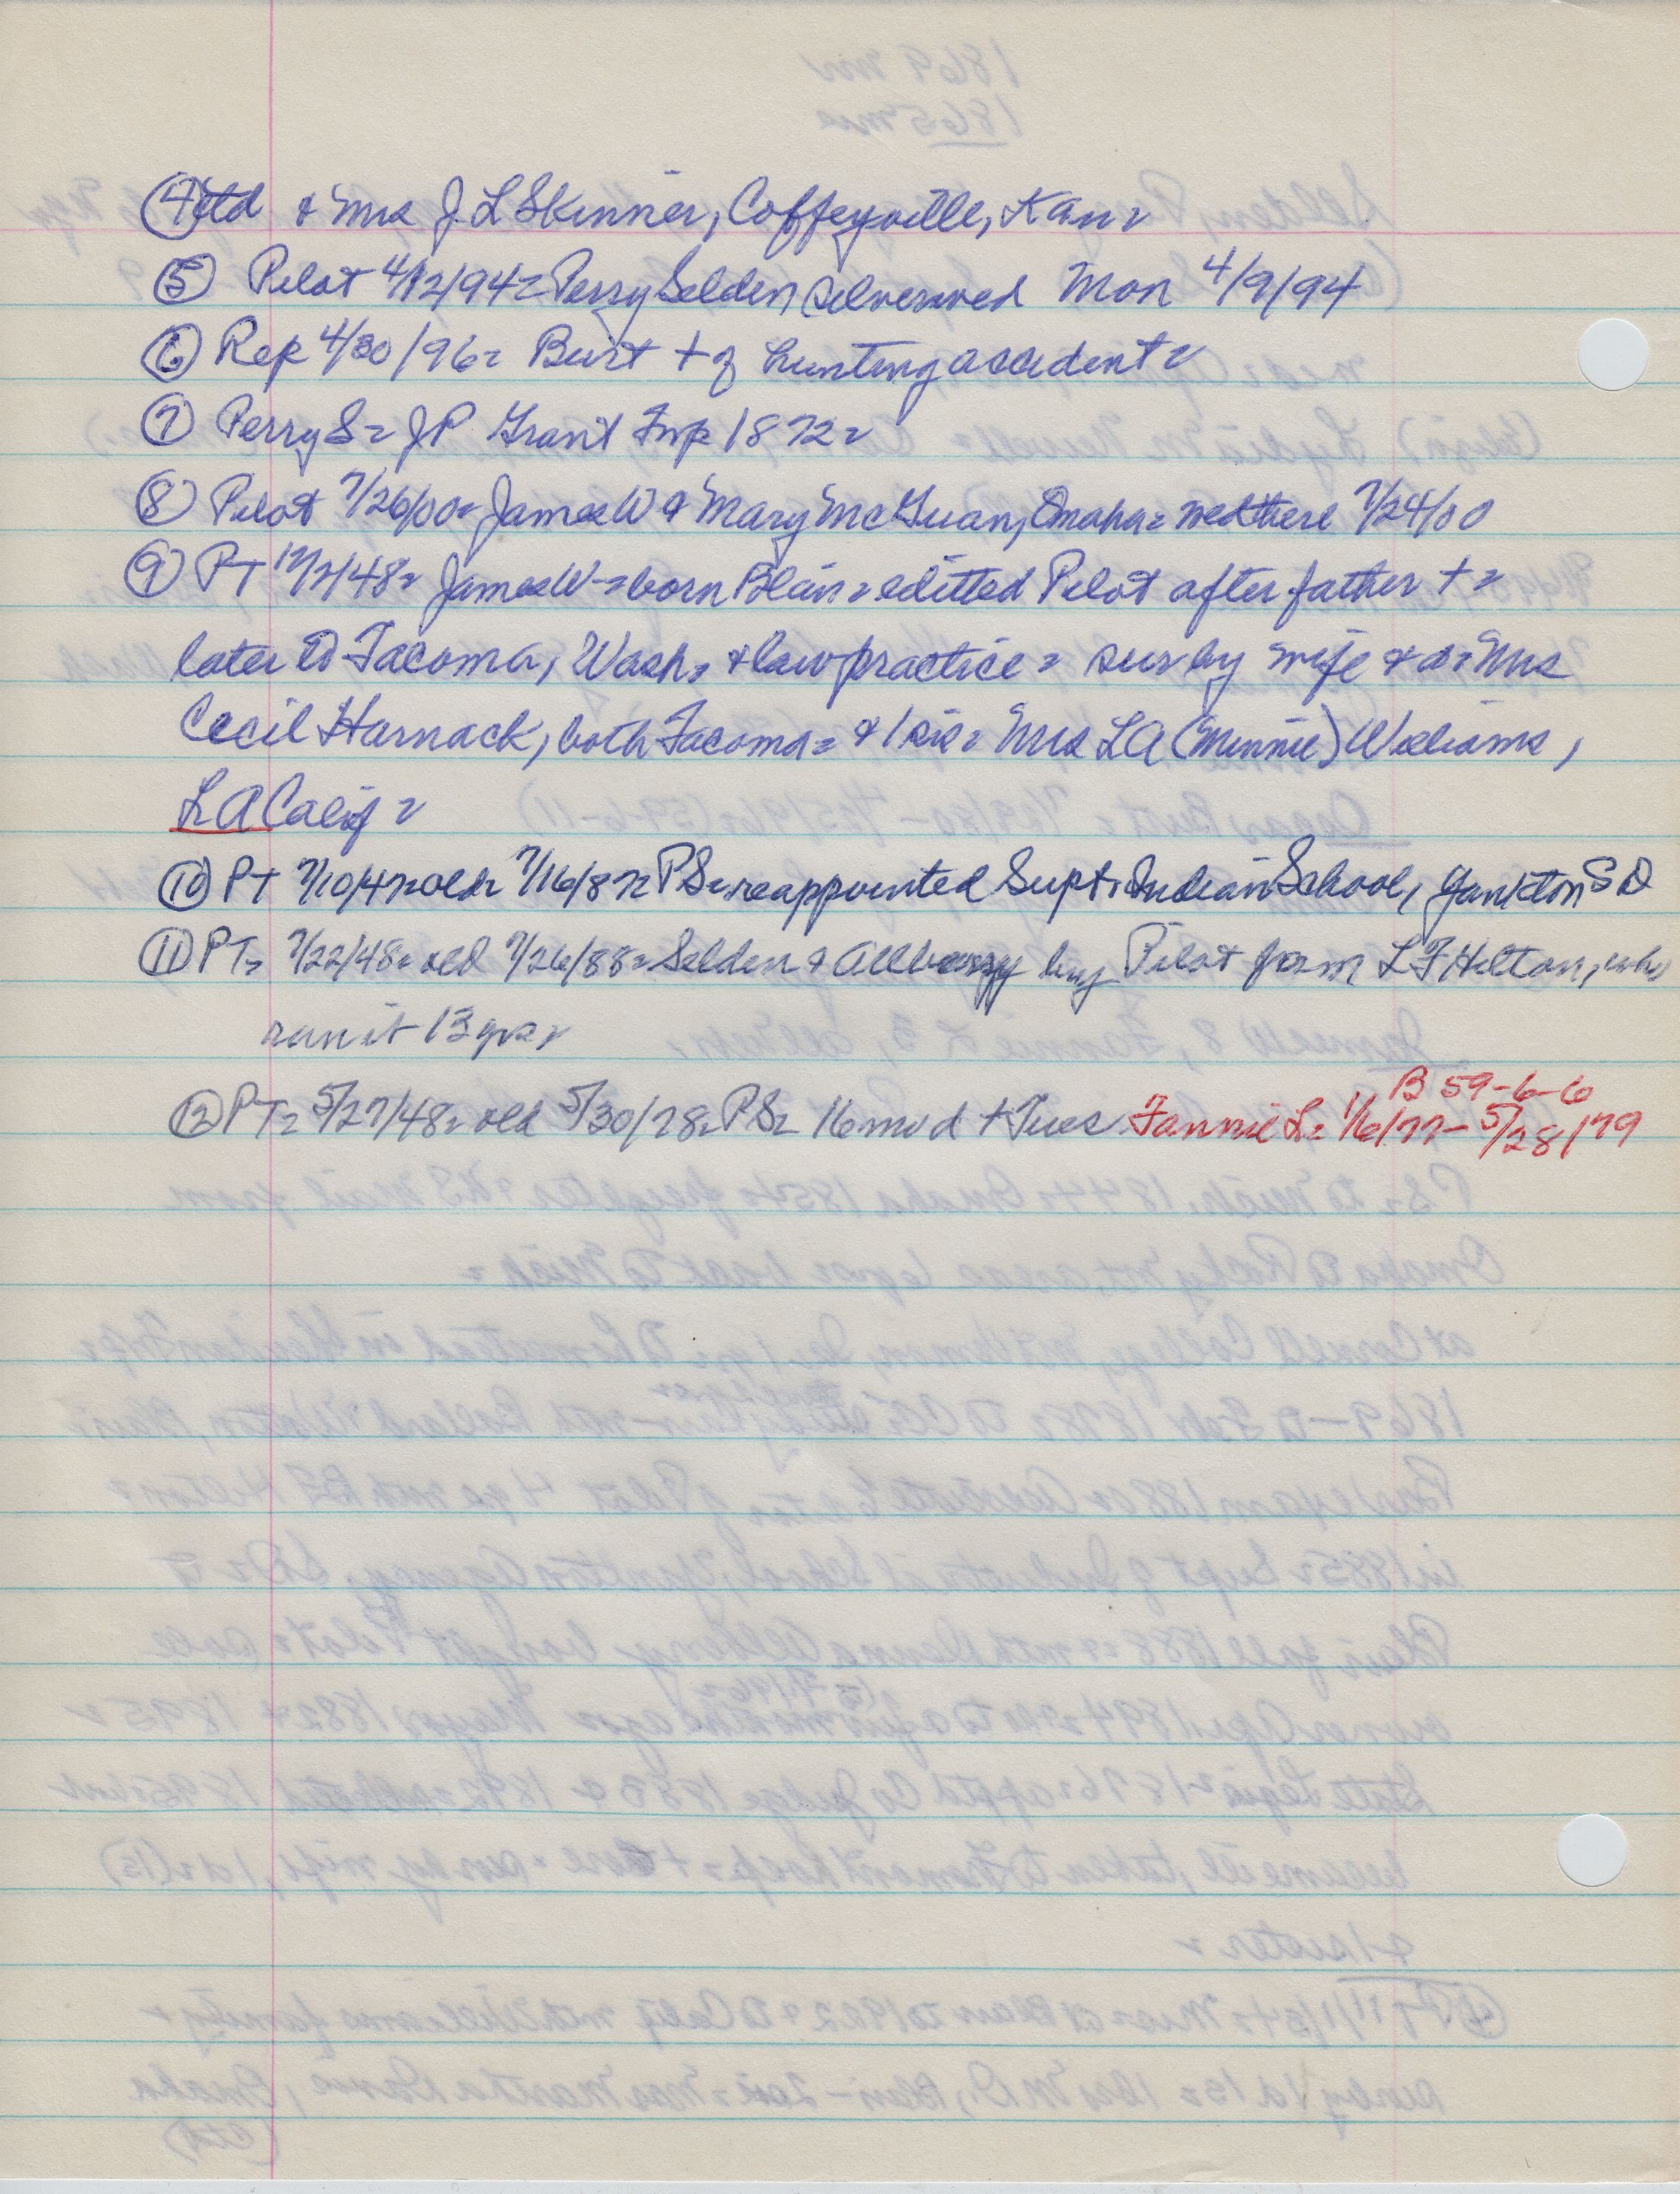 ④ctd & Mrs J L Skinner, Coffeyville, Kan =
⑤ Pilot 4/12/94 = Perry Selden, silverwed Mon 4/9/94
⑥ Rep 4/30/96 = Burt + of hunting accident =
⑦ Perry S = JP Grant Twp 1872 =
⑧ Pilot 7/26/00 = James W & Mary McGuan, Omaha = wed there 7/24/00
⑨ PT 12/2/48 = James W - = born Blair = editted Pilot after father + =
later to Tacoma, Wash = & law practice = sur by wife & d = Mrs
Cecil Harnack, both Tacoma = & 1 sis = Mrs LA (Minnie) Williams,
L A Calif =
⑩ PT 7/10/47 = old = 7/16/87 = PS = reappointed Supt. Indian School, Yankton S D
⑪ PT = 7/22/48 = old 7/26/88 = Selden & Allberry buy Pilot from L F Hilton, who
run it 13 yrs =
B 59-6-6
⑫ PT = 5/27/48 = old 5/30/78 = PS = 16 mo d + Tues Fannie L = 1/6/77 - 5/28/79